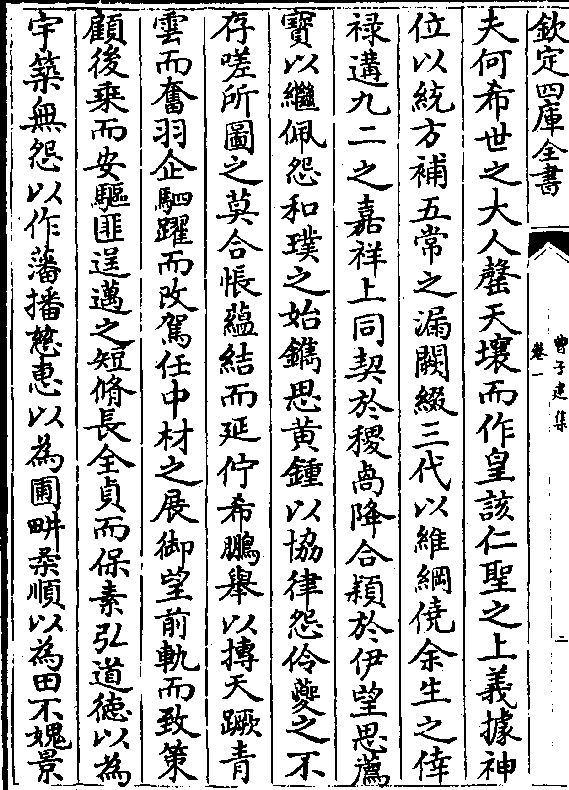 欽定四庫全書
曹子建集
卷一
二
夫何希世之大人罄天壤而作皇該仁聖之上義據神
位以統方補五常之漏闕綴三代以維綱僥余生之倖
禄遘九二之嘉祥上同契於稷卨降合穎於伊望思薦
寳以繼佩怨和璞之始鐫思黄鍾以協律怨伶夔之不
存嗟所圖之莫合悵藴結而延佇希鵬舉以摶天蹶青
雲而奮羽企駟躍而改駕任中材之展御望前軌而致策
顧後乗而安驅匪逞邁之短脩長全貞而保素弘道德以為
宇築無怨以作藩播慈惠以為圃畊柔順以為田不媿景